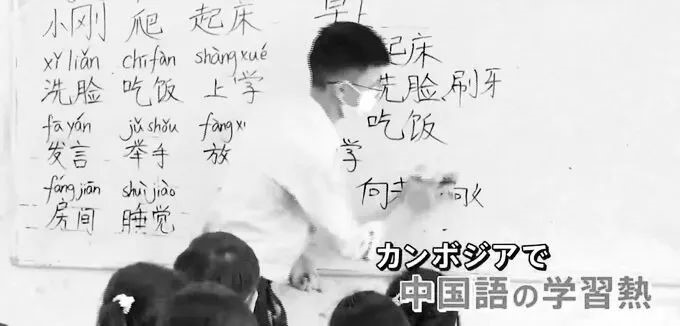 小刚 爬 起床
xǐ liǎn chīfàn shàngxué
洗脸 吃饭 上学
fā yán jǔ shǒu fàng
发言 举手 放学
fángjiān shuìjiào
房间 睡觉
起床
洗脸、刷牙
吃饭
向
カンボジアで
中国語の学習熱